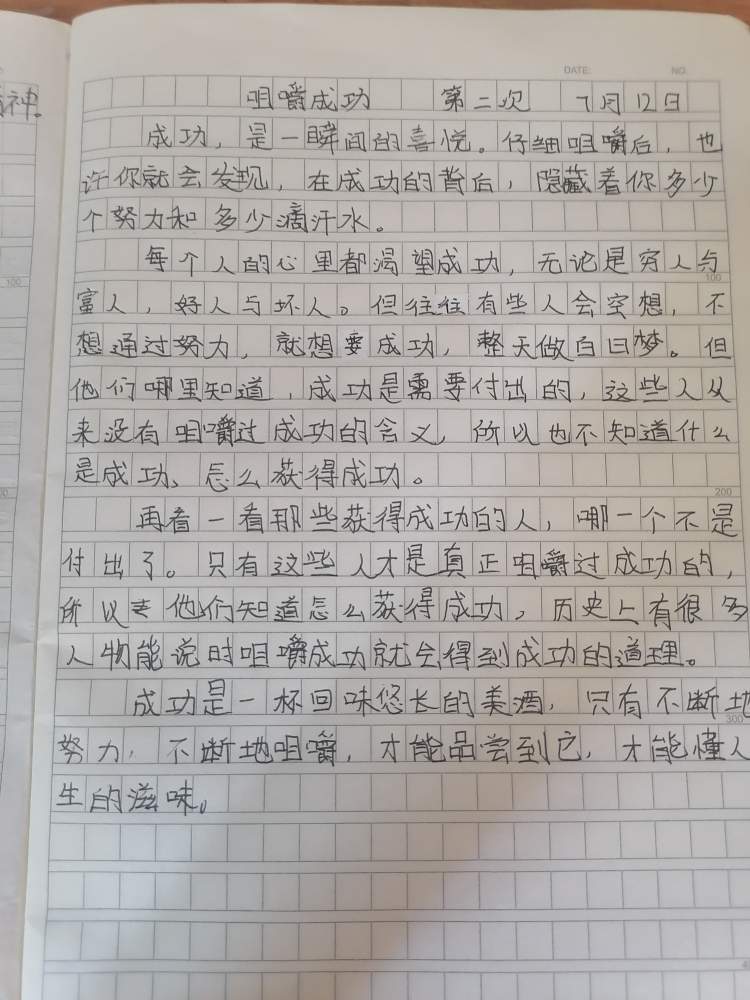 DATE: NO.
神。
咀嚼成功 第二次 7月12日
成功，是一瞬间的喜悦。仔细咀嚼后，也
许你就会发现，在成功的背后，隐藏着你多少
个努力和多少滴汗水。
每个人的心里都渴望成功，无论是穷人与
100
富人，好人与坏人。但往往有些人会空想，不
想通过努力，就想要成功，整天做白日梦。但
他们哪里知道，成功是需要付出的，这些人从
来没有咀嚼过成功的含义，所以也不知道什么
是成功、怎么获得成功。
200
再看一看那些获得成功的人，哪一个不是
付出了。只有这些人才是真正咀嚼过成功的，
所以他们知道怎么获得成功，历史上有很多
人物能说时咀嚼成功就会得到成功的道理。
成功是一杯回味悠长的美酒，只有不断地
300
努力，不断地咀嚼，才能品尝到它，才能懂人
生的滋味。